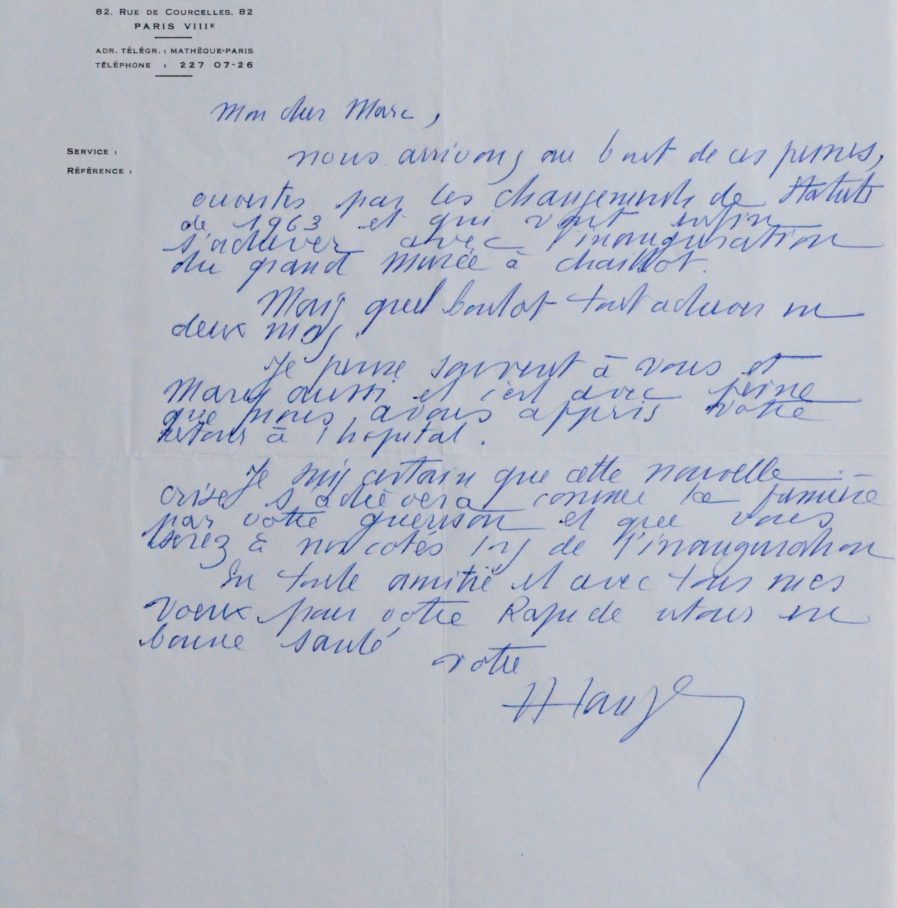 82, RUE DE COURCELLES, 82
PARIS VIIIᴱ
ADR. TÉLÉGR. : MATHÈQUE-PARIS
TÉLÉPHONE : 227 07-26
Mon cher Marc,
SERVICE :
nous arrivons au bout de ces peines,
RÉFÉRENCE :
ouvertes par les changements de Statuts
de 1963 et qui vont enfin
s'achever avec l'inauguration
du grand musée à Chaillot.
Mais quel boulot tout achever en
deux mois.
Je pense souvent à vous et
Mary aussi et c'est avec peine
que nous avons appris votre
retour à l'hopital.
Je suis certain que cette nouvelle
crise s'achèvera comme la première
par votre guérison et que vous
serez à nos cotés lors de l'inauguration
En toute amitié et avec tous mes
voeux pour votre Rapide retour en
bonne santé
votre